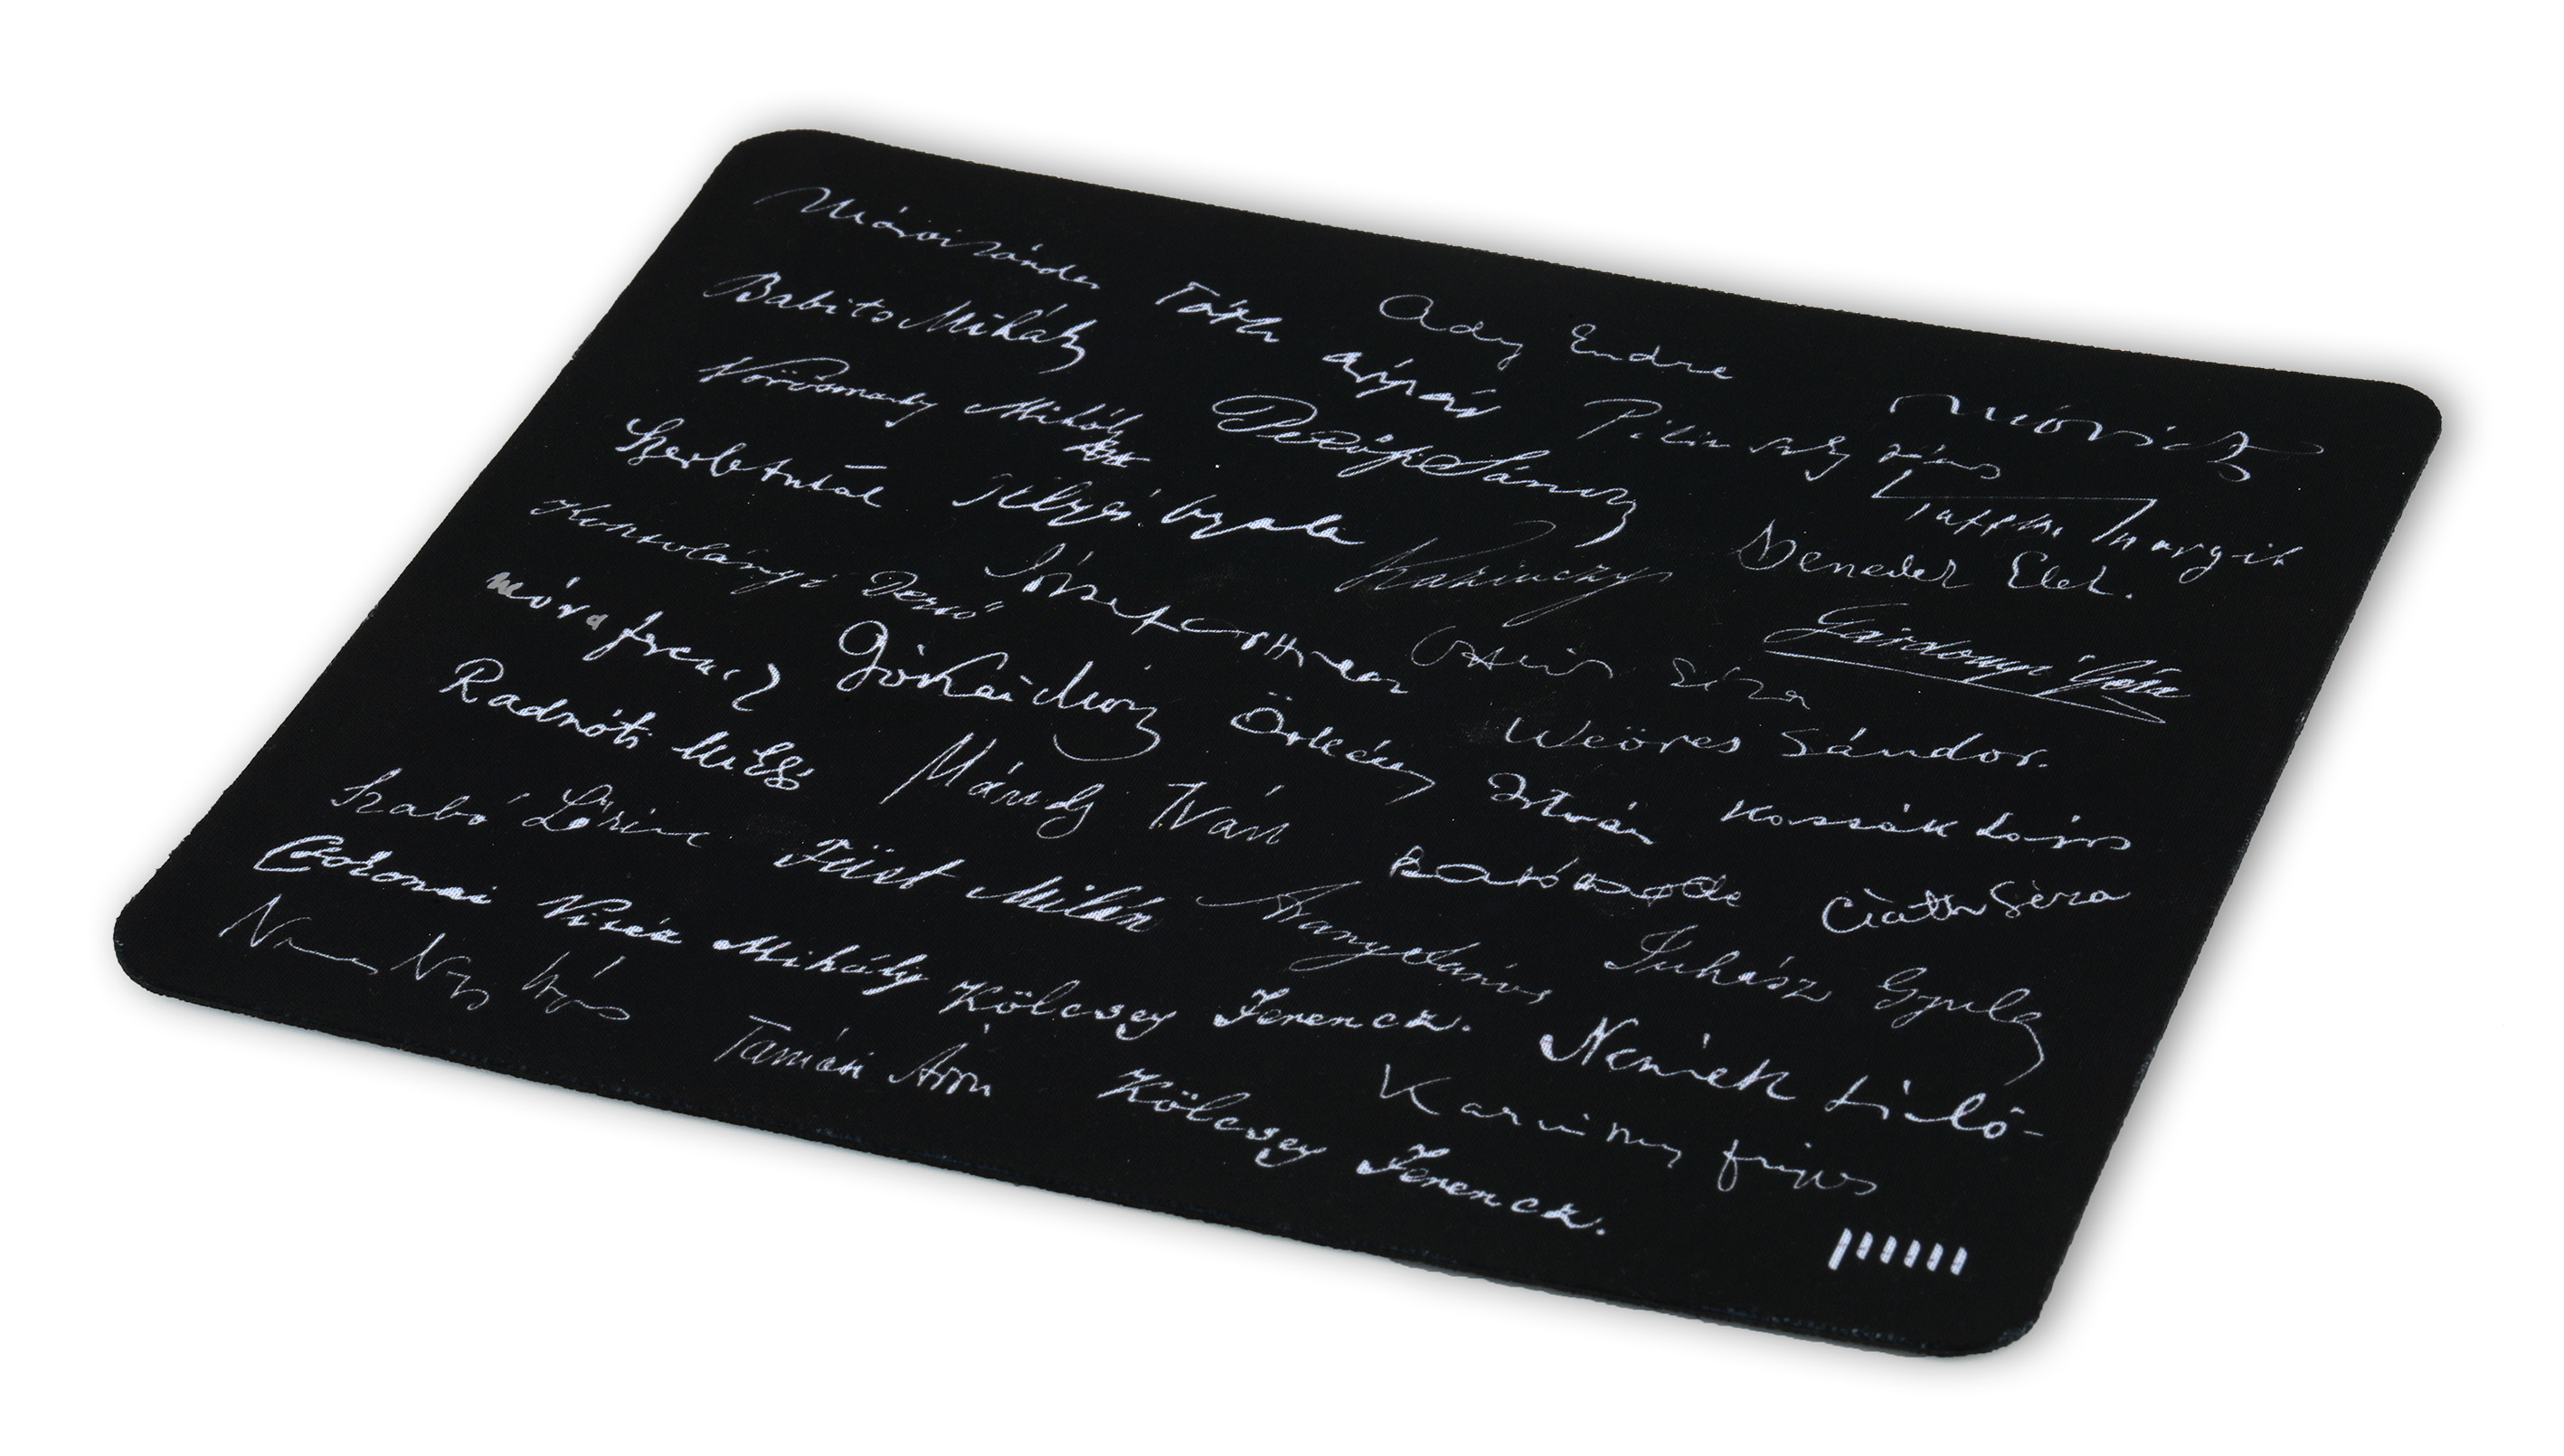 Márai Sándor
Tóth Árpád
Ady Endre
Móricz
Babits Mihály
Pilinszky János
Vörösmarty Mihály
Petőfi Sándor
Kaffka Margit
Szerb Antal
Illyés Gyula
Kazinczy
Benedek Elek.
Kosztolányi Dezső
József Attila
Gárdonyi Géza
Móra Ferencz
Jókai Mór
Weöres Sándor.
Radnóti Miklós
Mándy Iván
Örkény István
Kassák Lajos
Szabó Lőrinc
Füst Milán
Csáth Géza
Csokonai Vitéz Mihály
Arany János
Juhász Gyula
Nemes Nagy Ágnes
Kölcsey Ferencz.
Németh László
Tamási Áron
Kölcsey Ferencz.
Karinthy Frigyes